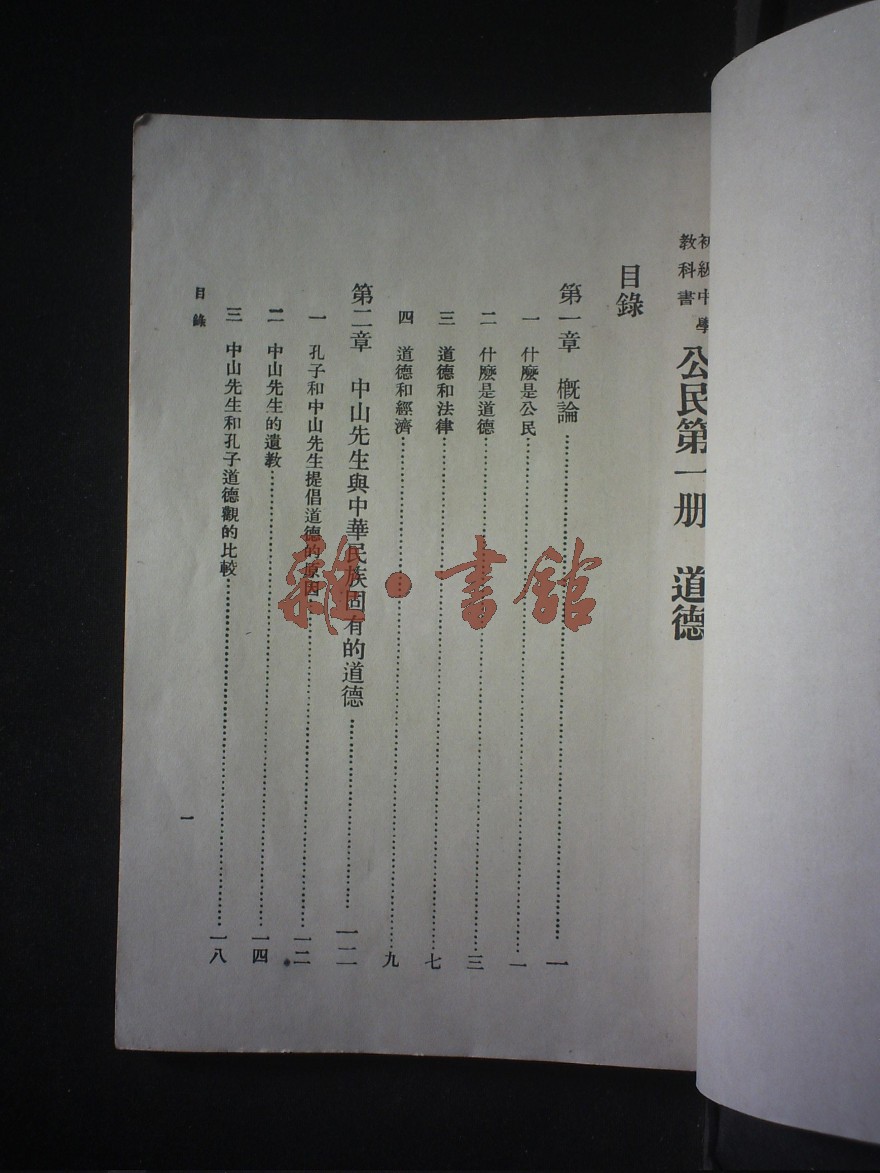 初級中學
教科書
公民第一册 道德
目錄
第一章 概論⋯⋯一
一 什麼是公民⋯⋯一
二 什麼是道德⋯⋯三
三 道德和法律⋯⋯七
四 道德和經濟⋯⋯九
第二章 中山先生與中華民族固有的道德⋯⋯一二
一 孔子和中山先生提倡道德的原因⋯⋯一二
二 中山先生的遺教⋯⋯一四
三 中山先生和孔子道德觀的比較⋯⋯一八
目錄
一
雜·書館